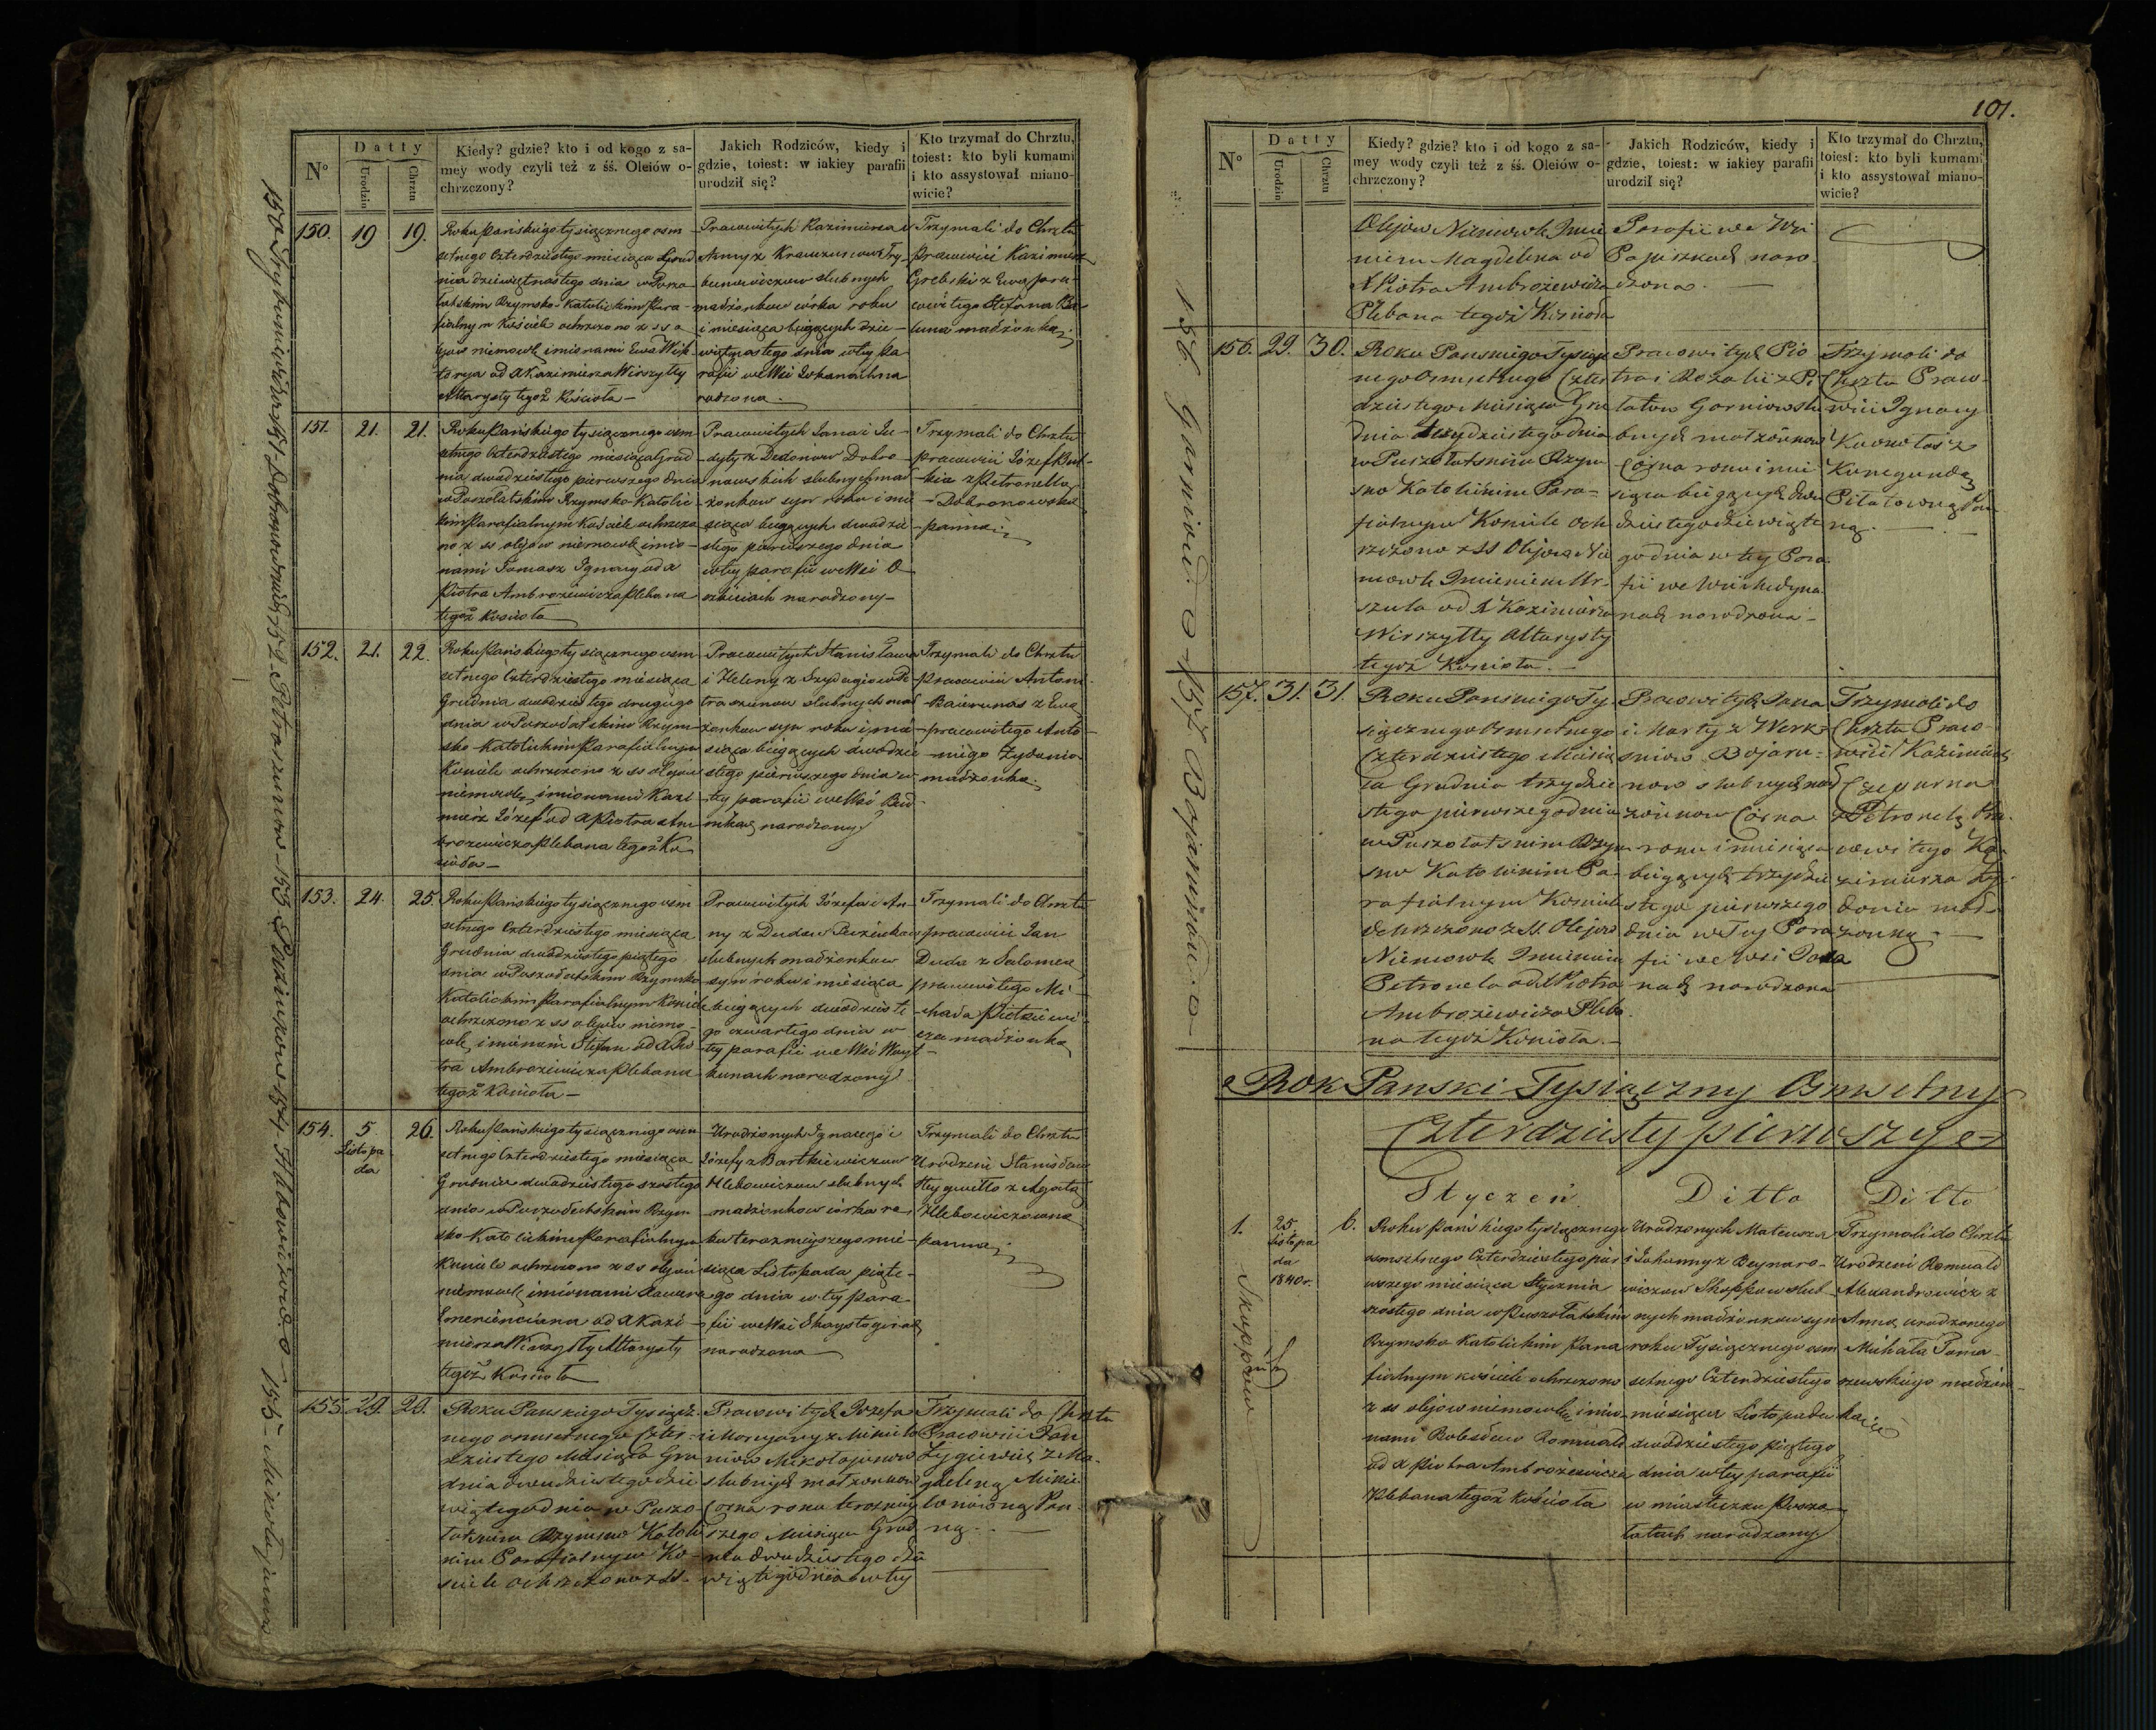 N° Datty Urodzin Chrztu
Kiedy? gdzie? kto i od kogo z sa-
mey wody czyli też z śś. Oleiów o-
chrzczony?
Jakich Rodziców, kiedy i
gdzie, toiest: w iakiey parafii
urodził się?
Kto trzymał do Chrztu,
toiest: kto byli kumami
i kto assystował miano-
wicie?
150. 19 19.
Roku Pańskiego tysiącznego osm
setnego Czterdziestego miesiąca Grud
nia dziewiętnastego dnia w Pusza
łatskim Rzymsko-Katolickim Para
fialnym Kościele ochrzczono z ss o
lejów niemowlę imionami Ewa Wik
torya od X Kazimierza Wirszyłły
Altarysty tegoż Kościoła
Pracowitych Kazimierza i
Anny z Try-
bunowiczow slubnych
małżonkow córka roku
i miesiąca bieżących dzie-
więtnastego dnia w tey Pa
rafii we Wsi
rodzona.
Trzymali do Chrztu
pracowici Kazimierz
z Ewą pra-
cowitego Stefana
małżonką
151. 21. 21.
Roku Pańskiego tysiącznego osm
setnego Czterdziestego miesiąca Grud
nia dwudziestego pierwszego dnia
w Poszołatskim Rzymsko-Katolic
kim Parafialnym Kościele ochrzczo
no z ss olejow niemowlę imio-
nami Tomasz Ignacy od X
Piotra Ambrożewicza Plebana
tegoż Kościoła
Pracowitych Jana i Ju-
dyty z Dedonow Dobro-
nowskich slubnych mał
żonkow syn roku i mie
siąca bieżących dwudzie
stego pierwszego dnia
w tey parafii we Wsi O
narodzony
Trzymali do Chrztu
pracowici Józef But-
kis z Petronellą
Dobronowską
panną
152. 21. 22.
Roku Pańskiego tysiącznego osm
setnego Czterdziestego miesiąca
Grudnia dwudziestego drugiego
dnia w Poszołatskim Rzym-
sko-Katolickim Parafialnym
Kościele ochrzczono z ss olejow
niemowlę imionami Kazi
mierz Józef od X Piotra Am
brożewicza Plebana tegoż Ko
ścioła
Pracowitych Stanisława
i Heleny z Pe
traszunow slubnych mał
żonkow syn roku i mie
siąca bieżących dwudzie
stego pierwszego dnia w
tey parafii we Wsi
narodzony
Trzymali do Chrztu
pracowici Antoni
z Ewą
pracowitego Anto
niego
małżonką.
153. 24. 25.
Roku Pańskiego tysiącznego osm
setnego Czterdziestego miesiąca
Grudnia dwudziestego piątego
dnia w Poszołatskim Rzymsko
Katolickim Parafialnym Kościele
ochrzczono z ss olejów niemo-
wlę imieniem Stefan od X Pio
tra Ambrożewicza Plebana
tegoż Kościoła
Pracowitych Józefa i An-
ny z Dudow
slubnych małżonkow
syn roku i miesiąca
bieżących dwudzieste
go czwartego dnia w
tey parafii we Wsi Wayt
kunach narodzony
Trzymali do Chrztu
pracowici Jan
Duda z Salomeą
pracowitego Mi-
chała Pietkiewi
cza małżonką
154. 5 Listopa da 26.
Roku Pańskiego tysiącznego osm
setnego Czterdziestego miesiąca
Grudnia dwudziestego szóstego
dnia w Poszołatskim Rzym
sko-Katolickim Parafialnym
Kościele ochrzczono z ss olejow
niemowlę imionami Xawera
Emerencianna od X Kazi-
mierza Wirszyłły Altarysty
tegoż Kościoła
Urodzonych Ignacego i
Józefy z Bartkiewiczow
Hlebowiczow slubnych
małżonkow córka ro
ku teraznieyszego mie
siąca Listopada piąte-
go dnia w tey para
fii we Wsi
narodzona
Trzymali do Chrztu
Urodzeni Stanisław
Stygwiłło z Agatą
Hlebowiczowną
panną
155. 29. 29.
Roku Panskiego Tysiącz-
nego osmsetnego Czter-
dziestego Miesiąca Gru
dnia dwudziestego dzie
wiątego dnia w Puszo
łatskim Rzymsko Katoli
kim Parafialnym Ko-
ściele ochrzczono z SS
Pracowitych Jozefa
i Maryany z
Mikołajunow
slubnych małżonkow
Corka roku teraznie
szego Miesiąca Grud
nia dwudziestego dzie
wiątego dnia w tey
Trzymali do Chrztu
Pracowici Jan
z Ma-
gdeleną
Pan
ną.
150 Trybunowiczowa 151 Dobronowski 152 Petraszunow 153 154 Hlebowiczow. 155 Mikołajunow
101.
N° Datty Urodzin Chrztu
Kiedy? gdzie? kto i od kogo z sa-
mey wody czyli też z śś. Oleiów o-
chrzczony?
Jakich Rodziców, kiedy i
gdzie, toiest: w iakiey parafii
urodził się?
Kto trzymał do Chrztu,
toiest: kto byli kumami
i kto assystował miano-
wicie?
Olejow Niemowle Imie
niem Magdelena od
X Piotra Ambrożewicza
Plebana tegoż Kościoła
Parafii we Wsi
naro
dzona.
156. 29. 30.
Roku Panskiego Tysiącz
nego Osmsetnego Czter
dziestego Miesiąca Gru
dnia trzydziestego dnia
w Puszołatskim Rzym
sko Katolickim Para-
fialnym Kosciele och
rzczono z SS Olejow Nie
mowle Imieniem Ur-
szula od X Kazimierza
Wirszyłły Altarysty
tegoż Kościoła.
Pracowitych Pio
tra i Rozalii z Pi
łatow Garniow slu
bnych małżonkow
Corka roku i mie
siąca bieżących dwu
dziestego dziewiąte
go dnia w tey Para
fii we Wsi
nach narodzona
Trzymali do
Chrztu Praco-
wici Ignacy
z
Kunegundą
Piłatowną Pan
ną.
157. 31. 31.
Roku Panskiego Ty
siącznego Osmsetnego
Czterdziestego Miesią
ca Grudnia trzydzie
stego pierwszego dnia
w Puszołatskim Rzym
sko Katolickim Pa-
rafialnym Kosciele
Ochrzczono z SS Olejow
Niemowle Imieniem
Petronela od X Piotra
Ambrożewicza Pleba
na tegoż Kościoła.
Pracowitych Jana
i Marty z
Bojaru-
now slubnych mał
żonkow Corka
roku i miesiąca
bieżących trzydzie
stego pierwszego
dnia w Tey Para
fii we Wsi
nach narodzona
Trzymali do
Chrztu Praco-
wici Kazimierz
z Petronelą Pra-
cowitego Ka-
zimierza
mał-
żonką
156. Garniow. 157 Bojarunow.
Rok Panski Tysiączny Osmsetny
Czterdziesty pierwszy
Styczeń Ditto Ditto
1. 25 Listopa da 1840 r. 6.
Roku Pańskiego tysiącznego
osmsetnego Czterdziestego pier
wszego miesiąca Stycznia
szóstego dnia w Puszołatskim
Rzymsko Katolickim Para
fialnym kościele ochrzczono
z ss olejow niemowlę imio
nami Bolesław Romuald
od X Piotra Ambrożewicza
Plebana tegoż Kościoła
Urodzonych Mateusza
i Johanny z Beynaro-
wiczow Skoppow slub
nych małżonkow syn
roku Tysiącznego osm
setnego Czterdziestego
miesiąca Listopada
dwudziestego piątego
dnia w tey parafii
w miasteczku Posza
łatach narodzony
Trzymali do Chrztu
Urodzeni Romuald
Alexandrowicz z
Anną urodzonego
Michała Toma-
szewskiego małżon
ką
Skoppow